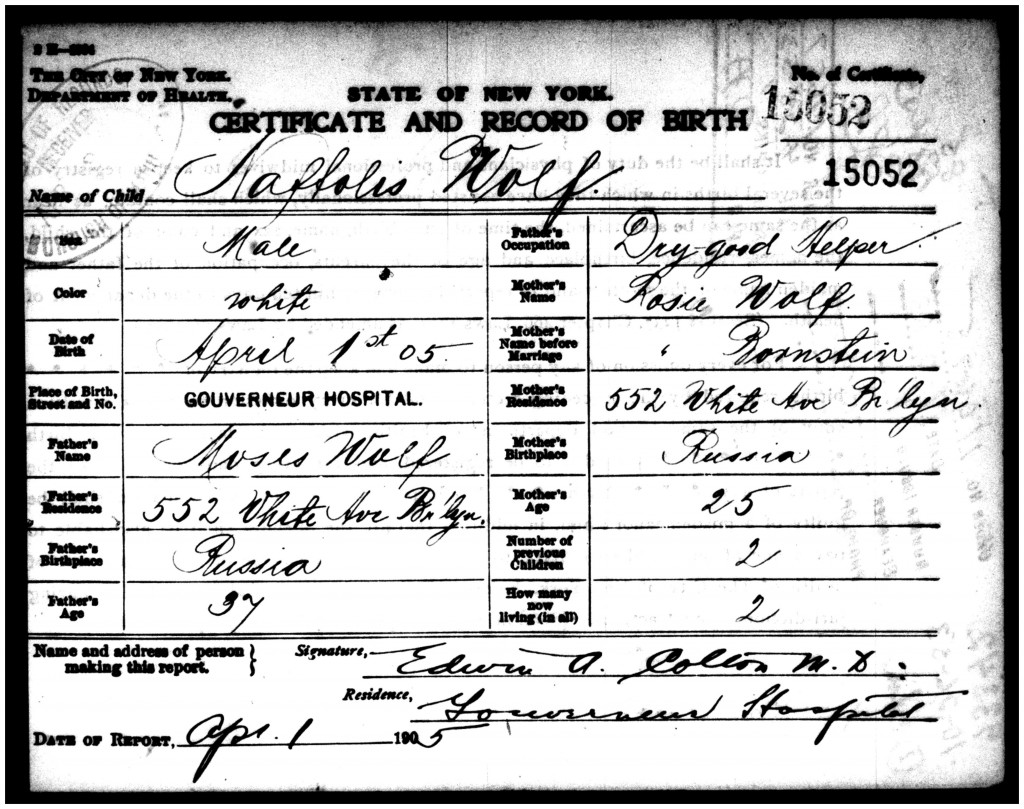 THE CITY OF NEW YORK.
DEPARTMENT OF HEALTH.
STATE OF NEW YORK.
No. of Certificate,
CERTIFICATE AND RECORD OF BIRTH
15052
15052
Name of Child Naftolis Wolf.
Sex Male
Father's Occupation Dry-good Helper
Color white
Mother's Name Rosie Wolf.
Date of Birth April 1st 05.
Mother's Name before Marriage " Bornstein
Place of Birth, Street and No. GOUVERNEUR HOSPITAL.
Mother's Residence 552 White Ave Br'lyn.
Father's Name Moses Wolf
Mother's Birthplace Russia
Father's Residence 552 White Ave Br'lyn.
Mother's Age 25
Father's Birthplace Russia
Number of previous Children 2
Father's Age 37
How many now living (in all) 2
Name and address of person making this report.
Signature, Edwin A. Colton M.D.
Residence, Gouverneur Hospital
DATE OF REPORT, Apr. 1 1905